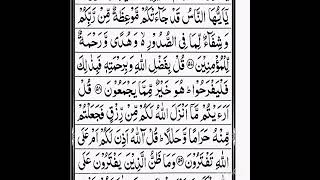 يٰۤاَيُّهَا النَّاسُ قَدْ جَآءَتْكُمْ مَّوْعِظَةٌ مِّنْ رَّبِّكُمْ
وَشِفَآءٌ لِّمَا فِى الصُّدُوْرِ ۙ وَهُدًى وَّرَحْمَةٌ
لِّلْمُؤْمِنِيْنَ ۝ قُلْ بِفَضْلِ اللّٰهِ وَبِرَحْمَتِهٖ فَبِذٰلِكَ
فَلْيَفْرَحُوْا ؕ هُوَ خَيْرٌ مِّمَّا يَجْمَعُوْنَ ۝ قُلْ
اَرَءَيْتُمْ مَّاۤ اَنْزَلَ اللّٰهُ لَكُمْ مِّنْ رِّزْقٍ فَجَعَلْتُمْ
مِّنْهُ حَرَامًا وَّحَلٰلًا ؕ قُلْ آٰللّٰهُ اَذِنَ لَكُمْ اَمْ عَلَى
اللّٰهِ تَفْتَرُوْنَ ۝ وَمَا ظَنُّ الَّذِيْنَ يَفْتَرُوْنَ عَلَى